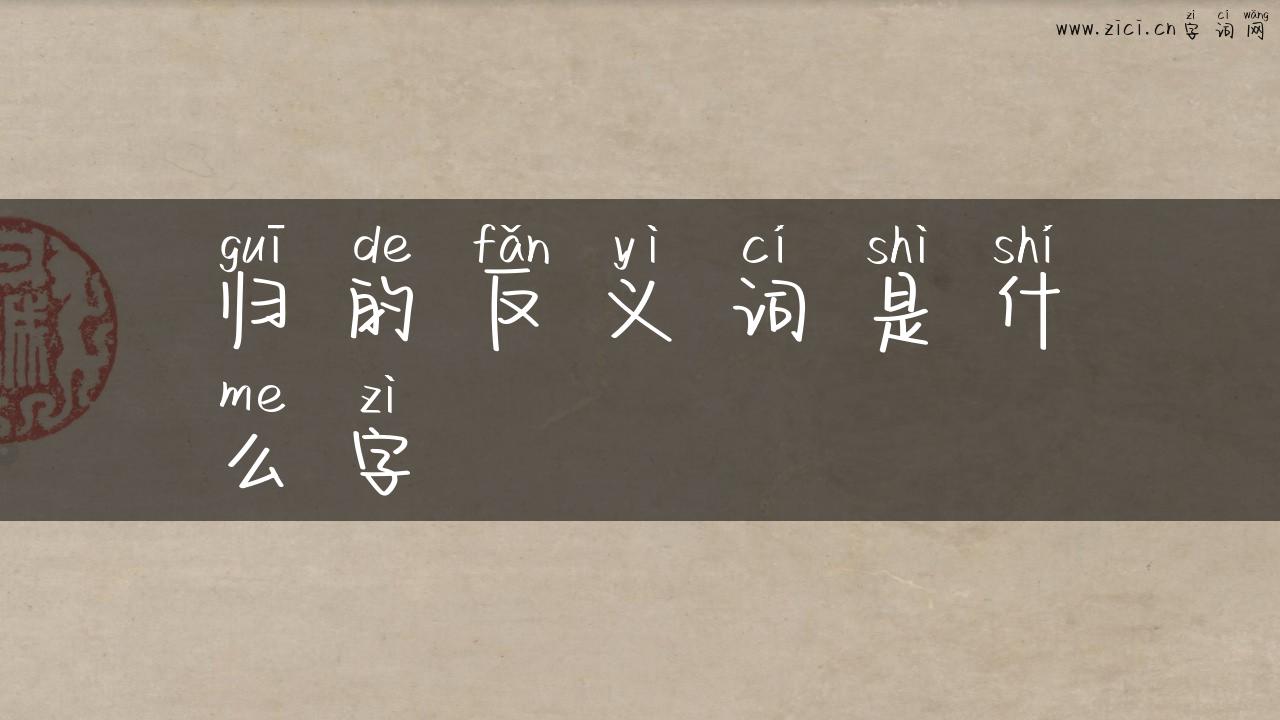 zì cí wǎng
www.zici.cn 字 词 网
guī de fǎn yì cí shì shí
归 的 反 义 词 是 什
me zì
么 字